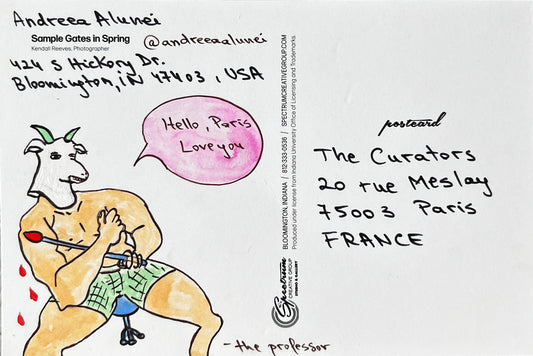 Andreea Alunei
Sample Gates in Spring
Kendall Reeves, Photographer
@andreeaalunei
424 S Hickory Dr.
Bloomington, IN 47403, USA
Hello, Paris
Love you
- the professor
Spectrum
CREATIVE GROUP
STUDIO & GALLERY
BLOOMINGTON, INDIANA | 812-333-0536 | SPECTRUMCREATIVEGROUP.COM
Produced under license from Indiana University Office of Licensing and Trademarks.
postcard
The Curators
20 rue Meslay
75003 Paris
FRANCE